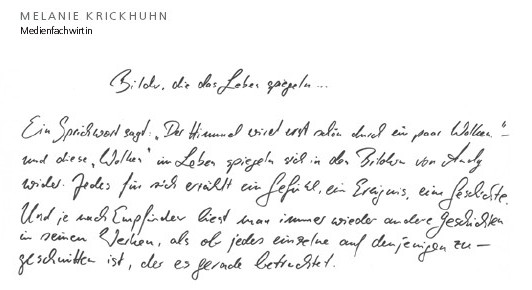 MELANIE KRICKHUHN
Medienfachwirtin
Bilder, die das Leben spiegeln...
Ein Sprichwort sagt: „Der Himmel wird erst schön durch ein paar Wolken." –
und diese „Wolken" im Leben spiegeln sich in den Bildern von Andy
wider. Jedes für sich erzählt ein Gefühl, ein Ereignis, eine Geschichte.
Und je nach Empfinden liest man immer wieder andere Geschichten
in seinen Werken, als ob jedes einzelne auf denjenigen zu–
geschnitten ist, der es gerade betrachtet.